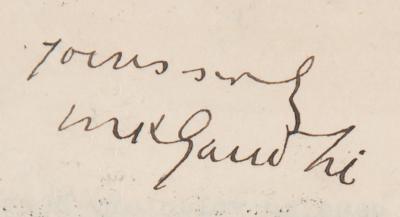 yours sincerely
mkGandhi